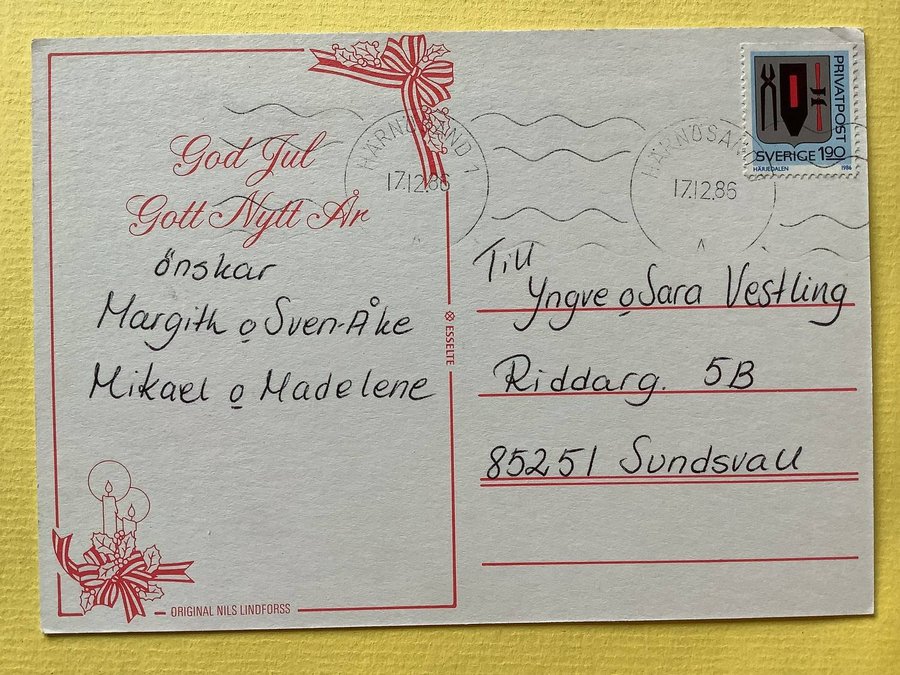 God Jul
Gott Nytt År
önskar
Margith o Sven-Åke
Mikael o Madelene
ORIGINAL NILS LINDFORSS
ESSELTE
HÄRNÖSAND 1
17.12.86
HÄRNÖSAND
17.12.86
PRIVATPOST
SVERIGE 1.90
HÄRJEDALEN 1986
Till
Yngve o Sara Vestling
Riddarg. 5B
85251 Sundsvall